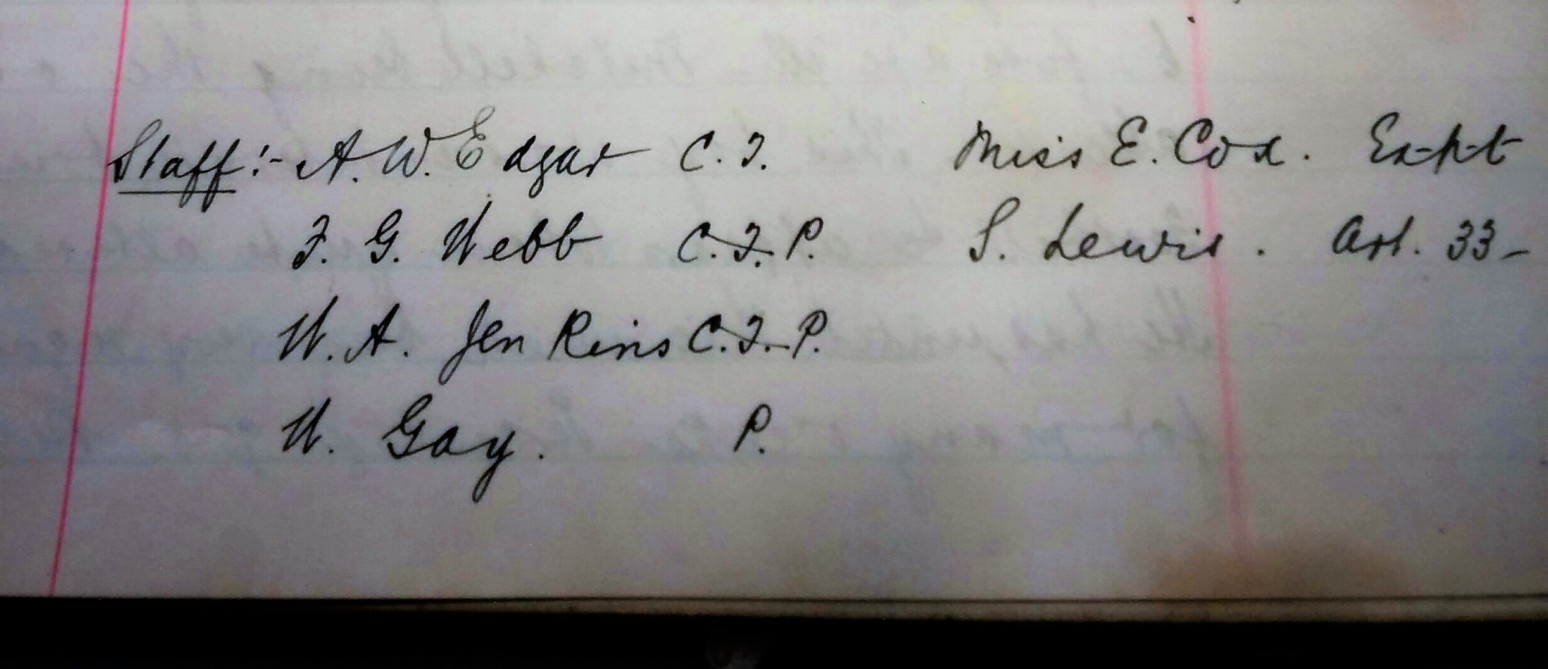 Staff:- A. W. Edgar C. T. Miss E. Cox. Ex-P-t
F. G. Webb C. T. P. S. Lewis. Art. 33-
W. A. Jenkins C. T. P.
W. Gay. P.